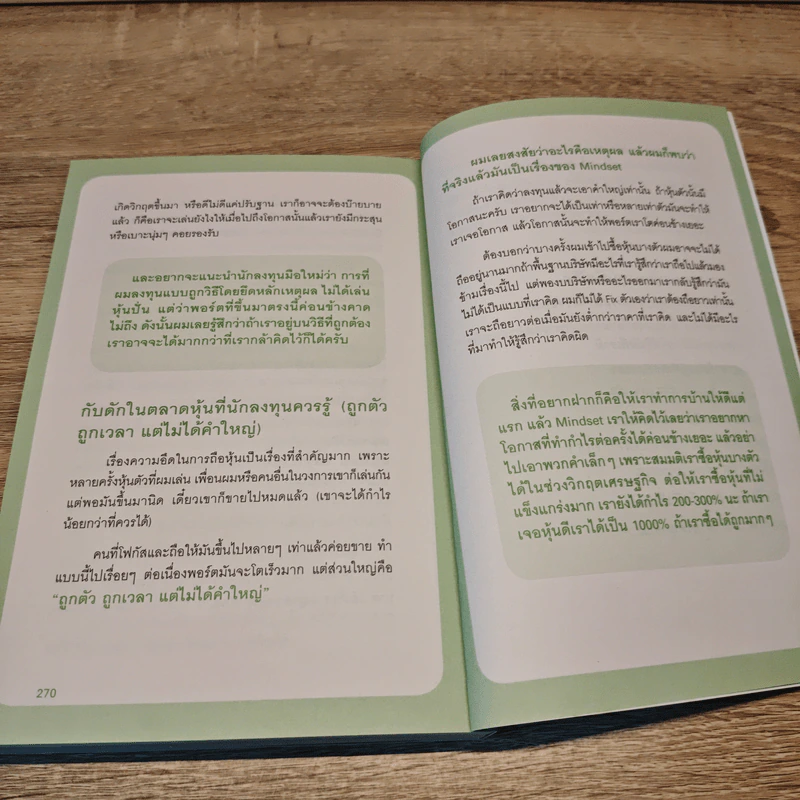 เกิดวิกฤตขึ้นมา หรือดีไม่ดีแค่ปรับฐาน เราก็อาจจะต้องบ๊ายบาย
แล้ว ก็คือเราจะเล่นยังไงให้เมื่อไปถึงโอกาสนั้นแล้วเรายังมีกระสุน
หรือเบาะนุ่มๆ คอยรองรับ
และอยากจะแนะนำนักลงทุนมือใหม่ว่า การที่
ผมลงทุนแบบถูกวิธีโดยยึดหลักเหตุผล ไม่ได้เล่น
หุ้นปั่น แต่ว่าพอร์ตที่ขึ้นมาตรงนี้ค่อนข้างคาด
ไม่ถึง ดังนั้นผมเลยรู้สึกว่าถ้าเราอยู่บนวิธีที่ถูกต้อง
เราอาจจะได้มากกว่าที่เรากล้าคิดไว้ก็ได้ครับ
กับดักในตลาดหุ้นที่นักลงทุนควรรู้ (ถูกตัว
ถูกเวลา แต่ไม่ได้คำใหญ่)
เรื่องความอึดในการถือหุ้นเป็นเรื่องที่สำคัญมาก เพราะ
หลายครั้งหุ้นตัวที่ผมเล่น เพื่อนผมหรือคนอื่นในวงการเขาก็เล่นกัน
แต่พอมันขึ้นมานิด เดี๋ยวเขาก็ขายไปหมดแล้ว (เขาจะได้กำไร
น้อยกว่าที่ควรได้)
คนที่โฟกัสและถือให้มันขึ้นไปหลายๆ เท่าแล้วค่อยขาย ทำ
แบบนี้ไปเรื่อยๆ ต่อเนื่องพอร์ตมันจะโตเร็วมาก แต่ส่วนใหญ่คือ
"ถูกตัว ถูกเวลา แต่ไม่ได้คำใหญ่"
270
ผมเลยสงสัยว่าอะไรคือเหตุผล แล้วผมก็พบว่า
ที่จริงแล้วมันเป็นเรื่องของ Mindset
ถ้าเราคิดว่าลงทุนแล้วจะเอาคำใหญ่เท่านั้น ถ้าหุ้นตัวนั้นมี
โอกาสนะครับ เราอยากจะได้เป็นเท่าหรือหลายเท่าตัวมันจะทำให้
เราเจอโอกาส แล้วโอกาสนั้นจะทำให้พอร์ตเราโตค่อนข้างเยอะ
ต้องบอกว่าบางครั้งผมเข้าไปซื้อหุ้นบางตัวผมอาจจะไม่ได้
ถืออยู่นานมากถ้าพื้นฐานบริษัทมีอะไรที่เรารู้สึกว่าเราถือไปแล้วมอง
ข้ามเรื่องนี้ไป แต่พองบบริษัทหรืออะไรออกมาเรากลับรู้สึกว่ามัน
ไม่ได้เป็นแบบที่เราคิด ผมก็ไม่ได้ Fix ตัวเองว่าเราต้องถือยาวเท่านั้น
เราจะถือยาวต่อเมื่อมันยังต่ำกว่าราคาที่เราคิด และไม่ได้มีอะไร
ที่มาทำให้รู้สึกว่าเราคิดผิด
สิ่งที่อยากฝากก็คือให้เราทำการบ้านให้ดีแต่
แรก แล้ว Mindset เราให้คิดไว้เลยว่าเราอยากหา
โอกาสที่ทำกำไรต่อครั้งได้ค่อนข้างเยอะ แล้วอย่า
ไปเอาพวกคำเล็กๆ เพราะสมมติเราซื้อหุ้นบางตัว
ได้ในช่วงวิกฤตเศรษฐกิจ ต่อให้เราซื้อหุ้นที่ไม่
แข็งแกร่งมาก เรายังได้กำไร 200-300% นะ ถ้าเรา
เจอหุ้นดีเราได้เป็น 1000% ถ้าเราซื้อได้ถูกมากๆ